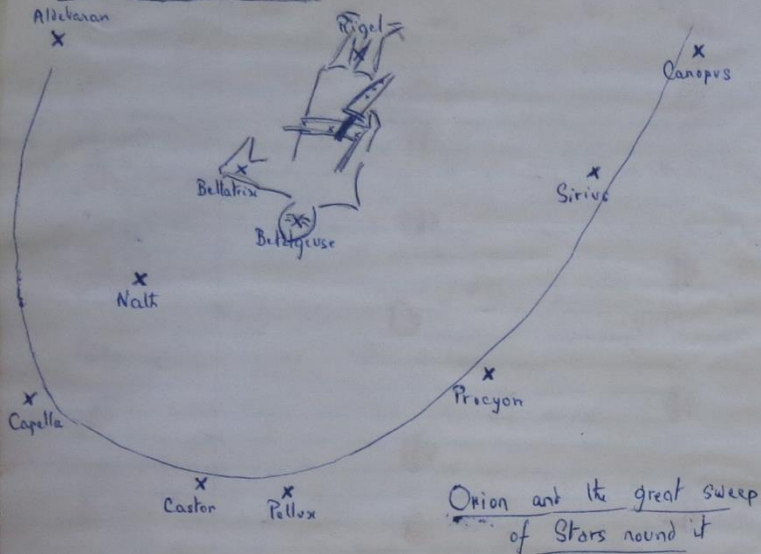 Aldebaran
Rigel
Canopus
Bellatrix
Sirius
Betelgeuse
Nath
Procyon
Capella
Castor
Pollux
Orion and the great sweep
of Stars round it